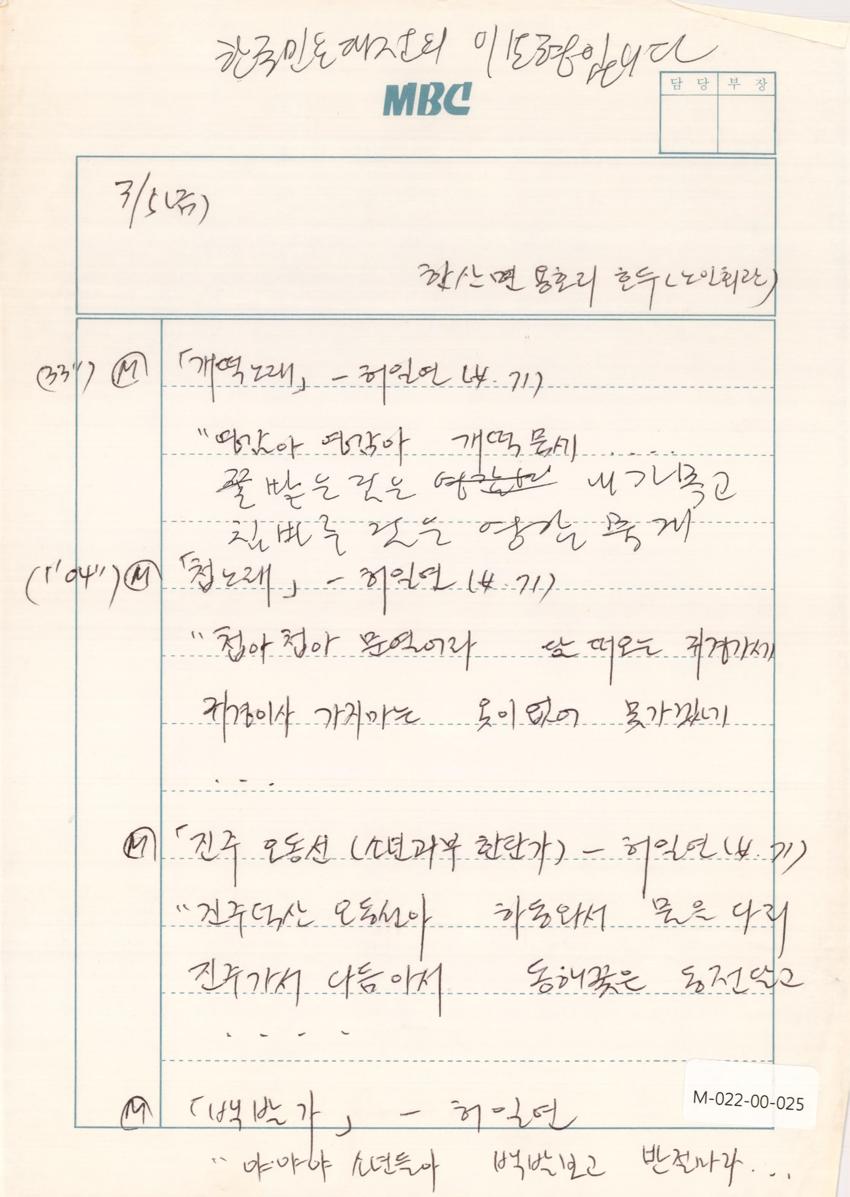 한국민요대전의 이보형입니다
MBC
담 당 부 장
3/5 (금)
한산면 용호리 호두 (노인회관)
(33") Ⓜ 「개떡노래」 - 허일연 (女. 71)
"영감아 영감아 개떡 묵세 ....
꿀 발은 것은 내 가 묵고
침 바른 것은 영감 묵게
(1'04") Ⓜ 「첩노래」 - 허일연 (女. 71)
"첩아 첩아 문열어라 달 떠오는 귀경가세
귀경이사 가지마는 옷이 없어 못가겠네
...
Ⓜ 「진주 오동선 (소년과부 한탄가) - 허일연 (女. 71)
"진주덕산 오동선아 하동와서 물을 다리
진주가서 다듬아서 동해꽃은 동전달고
....
Ⓜ 「백발가」 - 허일연
"야야야 소년들아 백발보고 반절마라...
M-022-00-025